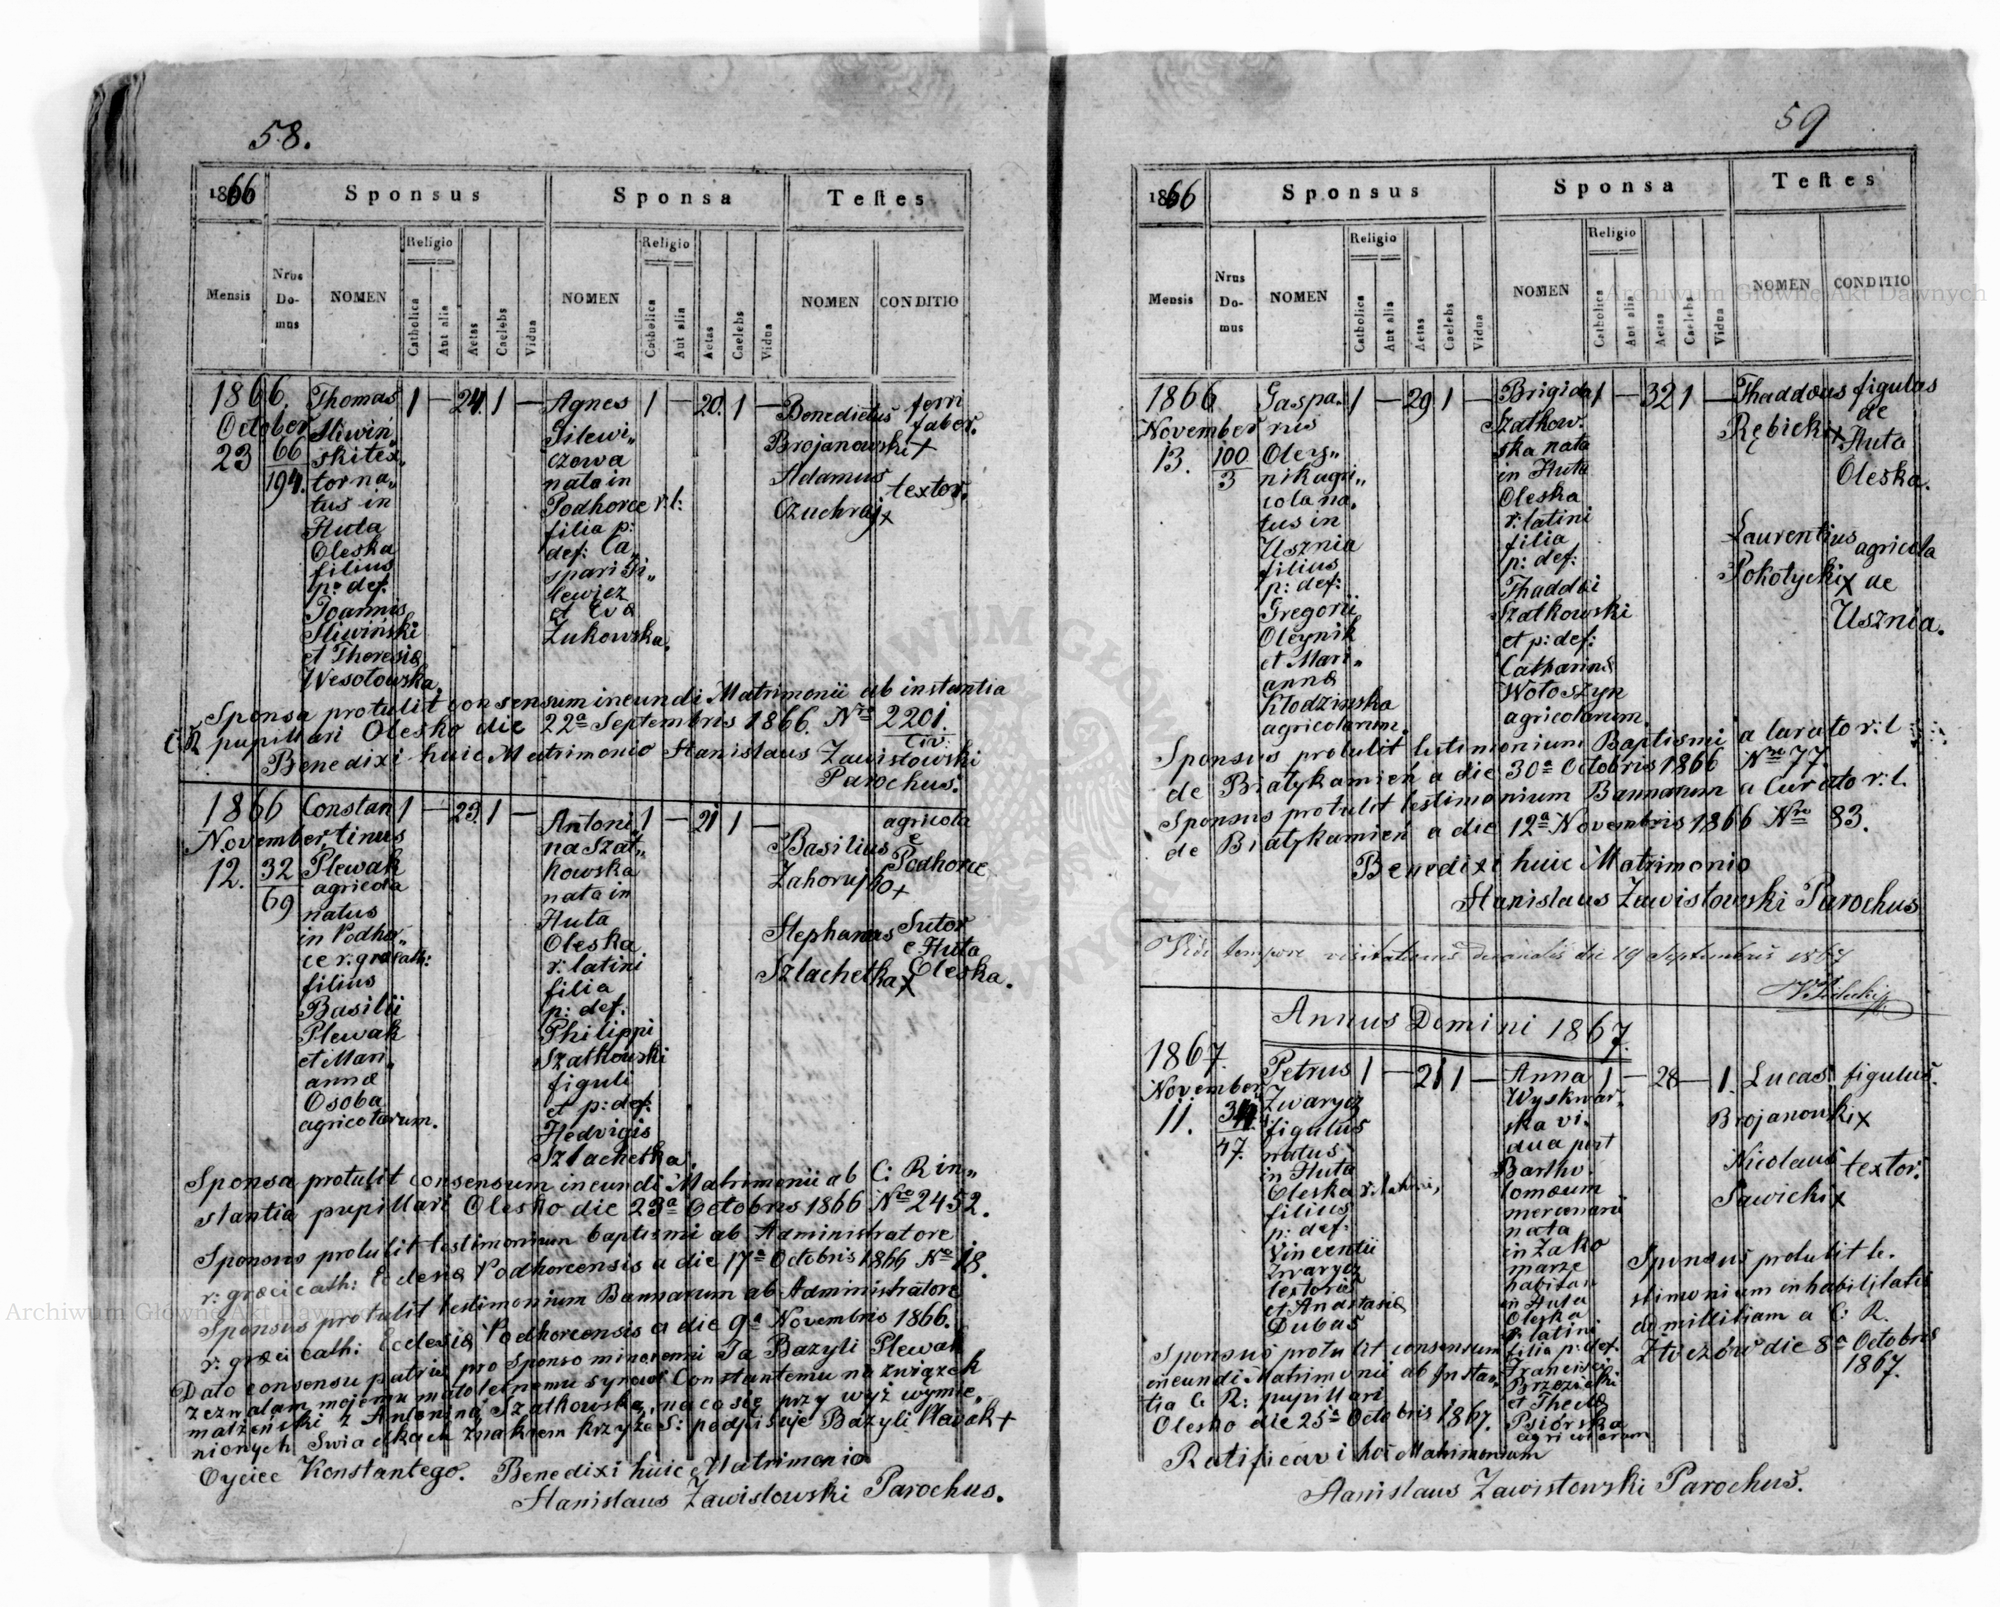 58.
1866
Sponsus
Sponsa
Testes
Mensis
Nrus Domus
NOMEN
Religio
Catholica
Aut alia
Aetas
Caelebs
Vidua
NOMEN
Religio
Catholica
Aut alia
Aetas
Caelebs
Vidua
NOMEN
CONDITIO
1866.
October
23
66
194.
Thomas
Sliwin„
ski tex„
tor na„
tus in
Huta
Oleska
filius
p: def.
Joannis
Sliwiński
et Theresiæ
Wesołowska.
1 — 24. 1 —
Agnes
Gilewi„
czowa
nata in
Podhorce r: l:
filia p:
def: Ca„
spari Gi„
lewicz
et Eva
Żukowska.
1 — 20. 1 —
Benedictus
Brojanowski +
Adamus
Czuchraj x
ferri
faber.
textor.
Sponsa protulit consensum incundi Matrimonii ab instantia
C: R pupillari Olesko die 22ª Septembris 1866. Nro 2201.
Civ:
Benedixi huic Matrimonio Stanislaus Zawistowski
Parochus.
1866
November
12.
32
69
Constan
tinus
Plewak
agricola
natus
in Podhor„
ce r: græ cath:
filius
Basilii
Plewak
et Mari„
annæ
Osoba
agricolarum.
1 — 23. 1 —
Antoni„
na Szat„
kowska
nata in
Huta
Oleska
r: latini
filia
p: def.
Philippi
Szatkowski
figuli
et p: def.
Hedvigis
Szlachetka.
1 — 21 1 —
Basilius
Zahorujko +
Stephanus
Szlachetka x
agricola
e
Podhorce
Sutor
e Huta
Oleska.
Sponsa protulit consensum incundi Matrimonii ab C: R in„
stantia pupillari Olesko die 23ª Octobris 1866 Nro 2452.
Sponsus protulit testimonium baptismi ab Administratore
r: græci cath: Eclesiæ Podhorcensis a die 17ª Octobris 1866 No 18.
Sponsus protulit testimonium Bannarum ab Administratore
r: græci cath: Eclesiæ Podhorcensis a die 9ª Novembris 1866.
Dato consensu patris pro sponso minorenni Ja Bazyli Plewak
zezwalam mojemu małoletnemu synowi Constantemu na związek
małżeński z Antoniną Szatkowską, na co się przy wyż wymie„
nionych Świadkach znakiem krzyża S: podpisuję Bazyli Plewak +
Oyciec Konstantego. Benedixi huic Matrimonio
Stanislaus Zawistowski Parochus.
59
1866
Sponsus
Sponsa
Testes
Mensis
Nrus Domus
NOMEN
Religio
Catholica
Aut alia
Aetas
Caelebs
Vidua
NOMEN
Religio
Catholica
Aut alia
Aetas
Caelebs
Vidua
NOMEN
CONDITIO
1866
November
13.
100
3
Gaspa„
rus
Oley„
nik agri„
cola na„
tus in
Usznia
filius
p: def:
Gregorii
Oleynik
et Mari„
annæ
Kłodzinska
agricolarum.
1 — 29 1 —
Brigida
Szatkow„
ska nata
in Huta
Oleska
r: latini
filia
p: def:
Thaddæi
Szatkowski
et p: def:
Catharinæ
Wołoszyn
agricolarum.
1 — 32 1 —
Thaddæus
Rębicki x
Laurentius
Pokotycki x
figulus
de
Huta
Oleska.
agricola
de
Usznia.
Sponsus protulit testimonium Baptismi a Curato r: l
de Białykamień a die 30ª Octobris 1866 Nro 77.
Sponsus protulit testimonium Bannarum a Curato r: l.
de Białykamień a die 12ª Novembris 1866 Nro 83.
Benedixi huic Matrimonio
Stanislaus Zawistowski Parochus
Vidi tempore visitationis decanalis die 19 Septembris 1867
Annus Domini 1867.
1867.
November
11.
34
47.
Petrus
Zwarycz
figulus
natus
in Huta
Oleska r: latini,
filius
p: def.
Vincentii
Zwarycz
textoris
et Anastasiæ
Dubas
1 — 21 1 —
Anna
Wyskwar„
ska vi„
dua post
Bartho„
lomæum
mercenarii
nata
in Zako
marze
habitan
in Huta
Oleska
r: latini
filia p: def.
Francisci
Brzezicki
et Theclæ
Psiórska
agricolarum
1 — 28 — 1.
Lucas
Brojanowski x
Nicolaus
Sawicki x
figulus.
textor.
Sponsus protulit te„
stimonium inhabilitatis
ad militiam a C: R.
Złoczów die 8ª Octobris
1867.
Sponsus protulit consensum
incundi Matrimonii ab Instan„
tia C: R: pupillari
Olesko die 25ª Octobris 1867.
Ratificavi hoc Matrimonium
Stanislaus Zawistowski Parochus.
Archiwum Główne Akt Dawnych
Archiwum Główne Akt Dawnych